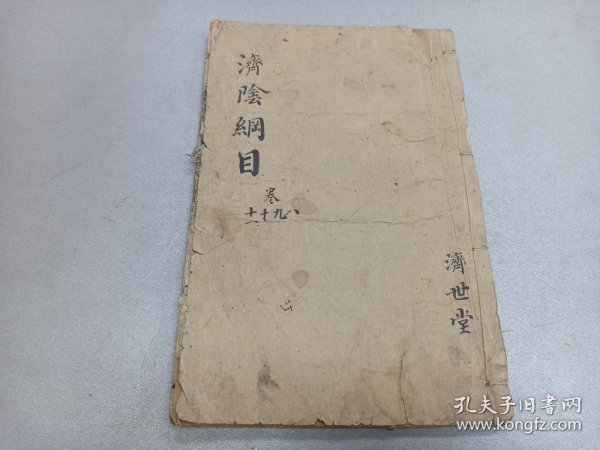 濟陰綱目
卷
八九十十一
濟世堂
孔夫子旧书网
www.kongfz.com